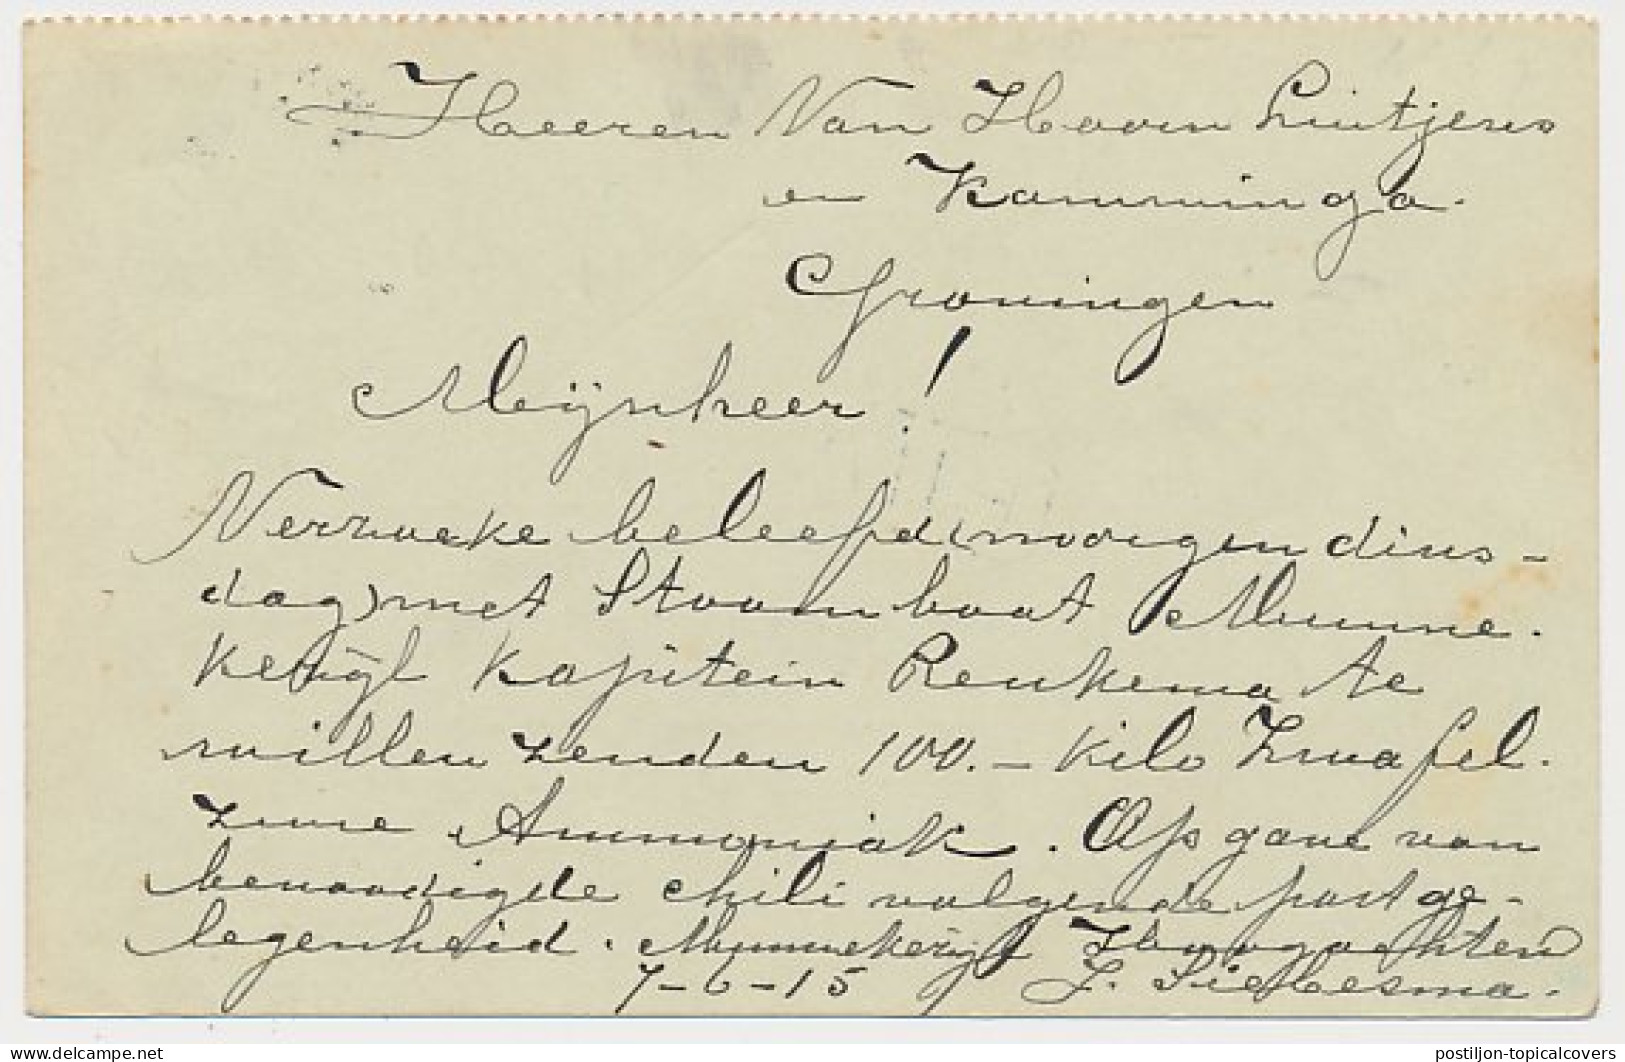 Heeren Van Hoorn Luitjens
en Kamminga.
Groningen
Mijnheer!
Verzoeke beleefd (morgen dins-
dag) met Stoomboot Munne-
kezijl Kapitein Reukema te
willen zenden 100.- Kilo Zwafel-
zure Ammoniak. Opgave van
benoodigde chili volgende post ge-
legenheid. Munnekezijl Hoogachtend
7-6-15 J. Siebesma.
postiljon-topicalcovers
delcampe.net